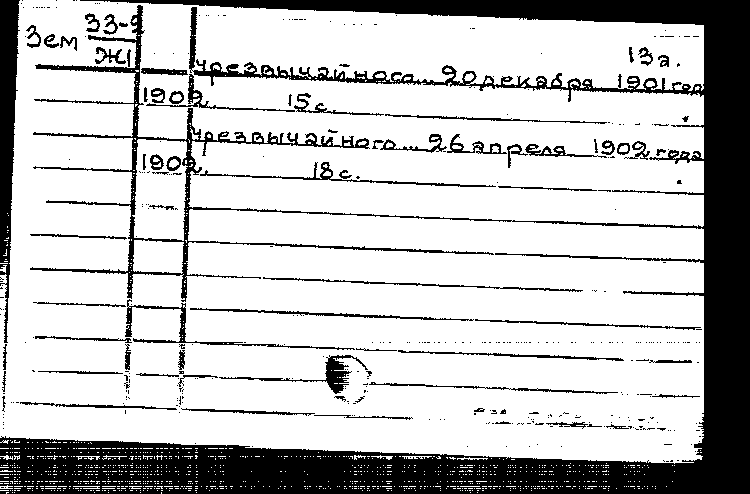 Зем 33-2
Ж1
13а.
Чрезвычайного... 20 декабря 1901 года
1902. 15 с.
Чрезвычайного... 26 апреля 1902 года.
1902. 18 с.